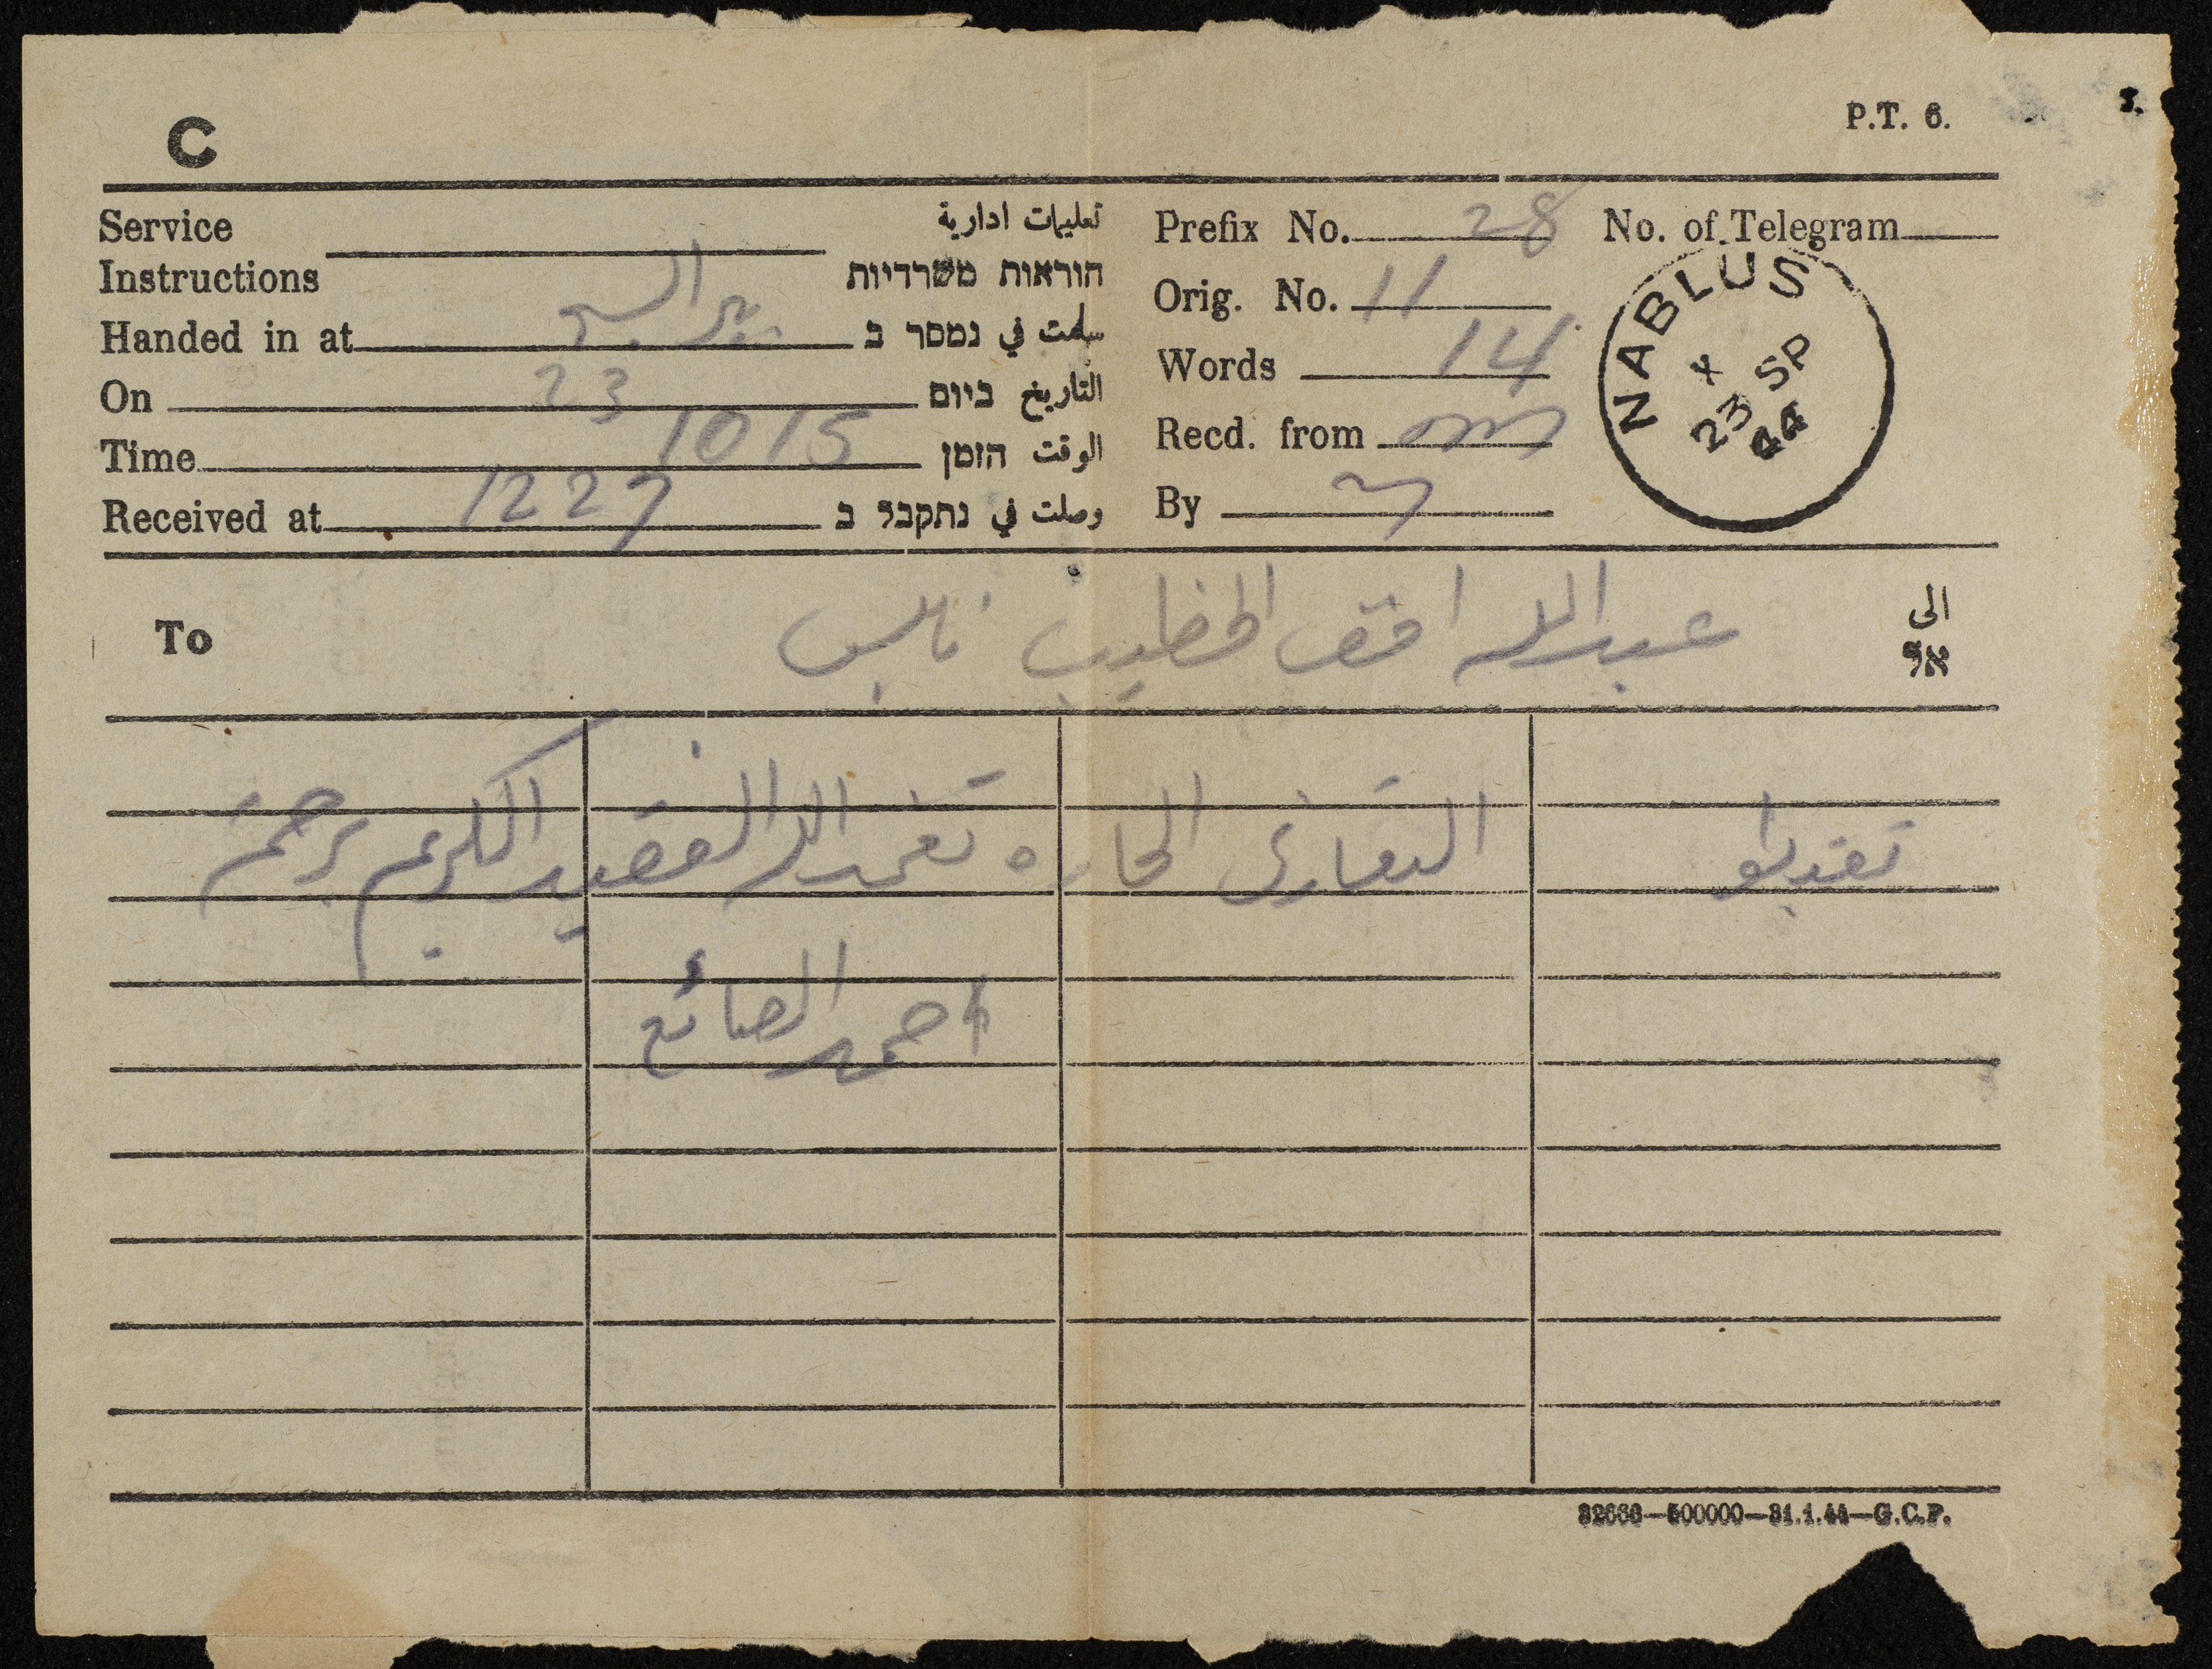 C
P.T. 6.
Service Instructions تعليمات ادارية הוראות משרדיות
Handed in at بير السبع سلمت في נמסר ב
On 23 التاريخ ביום
Time 1015 الوقت הזמן
Received at 1227 وصلت في נתקבל ב
Prefix No. 28 No. of Telegram
Orig. No. 11
Words 14
Recd. from
By
NABLUS
X
23 SP
44
To عبدالله الخطيب نابلس الى אל
تقبلوا التعازي الحاره تغمد الله الفقيد الكريم برحمته
احمد الصائغ
32666—500000—31.1.44—G.C.P.